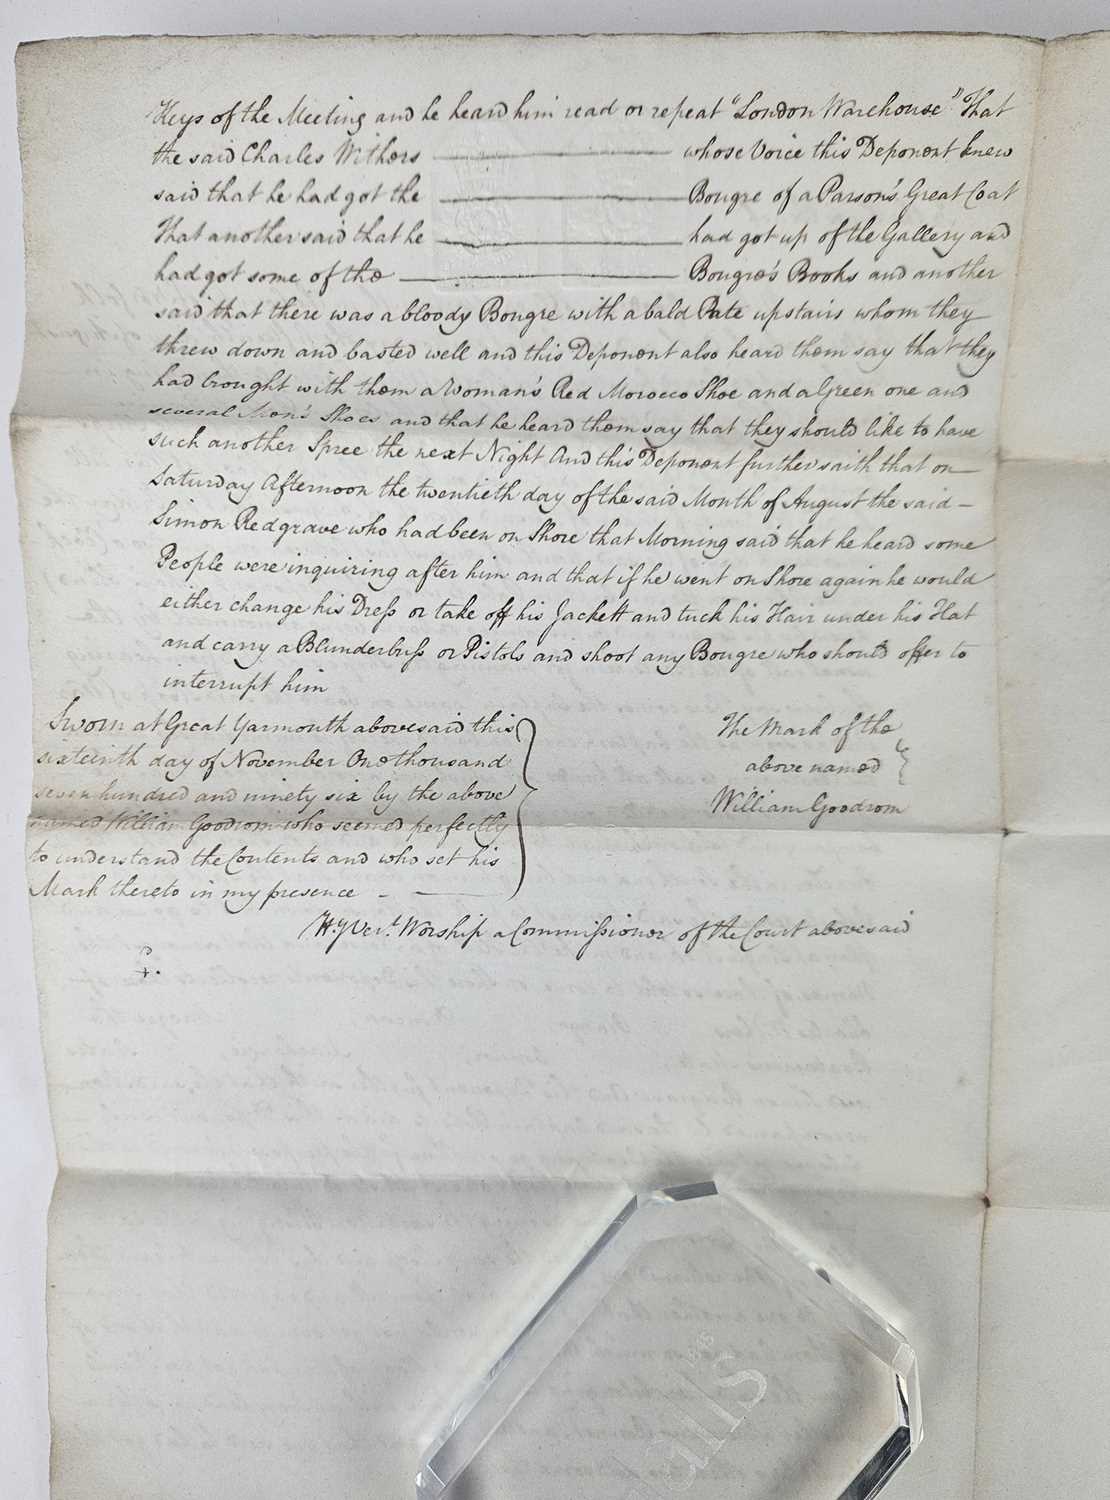 Keys of the Meeting and he heard him read or repeat "London Warehouse" That
the said Charles Withers ——— whose Voice this Deponent knew
said that he had got the ——— Bougre of a Parson's Great Coat
That another said that he ——— had got up of the Gallery and
had got some of the ——— Bougre's Books and another
said that there was a bloody Bougre with a bald Pate upstairs whom they
threw down and basted well and this Deponent also heard them say that they
had brought with them a Woman's Red Morocco Shoe and a Green one and
several Men's Shoes and that he heard them say that they should like to have
such another Spree the next Night And this Deponent further saith that on
Saturday Afternoon the twentieth day of the said Month of August the said
Simon Redgrave who had been on Shore that Morning said that he heard some
People were inquiring after him and that if he went on Shore again he would
either change his Dress or take off his Jackett and tuck his Hair under his Hat
and carry a Blunderbuss or Pistols and shoot any Bougre who should offer to
interrupt him
Sworn at Great Yarmouth abovesaid this
sixteenth day of November One thousand
seven hundred and ninety six by the above
named William Goodrom who seemed perfectly
to understand the Contents and who set his
Mark thereto in my presence
The Mark of the
above named
William Goodrom
Worship a Commissioner of the Court abovesaid
alls